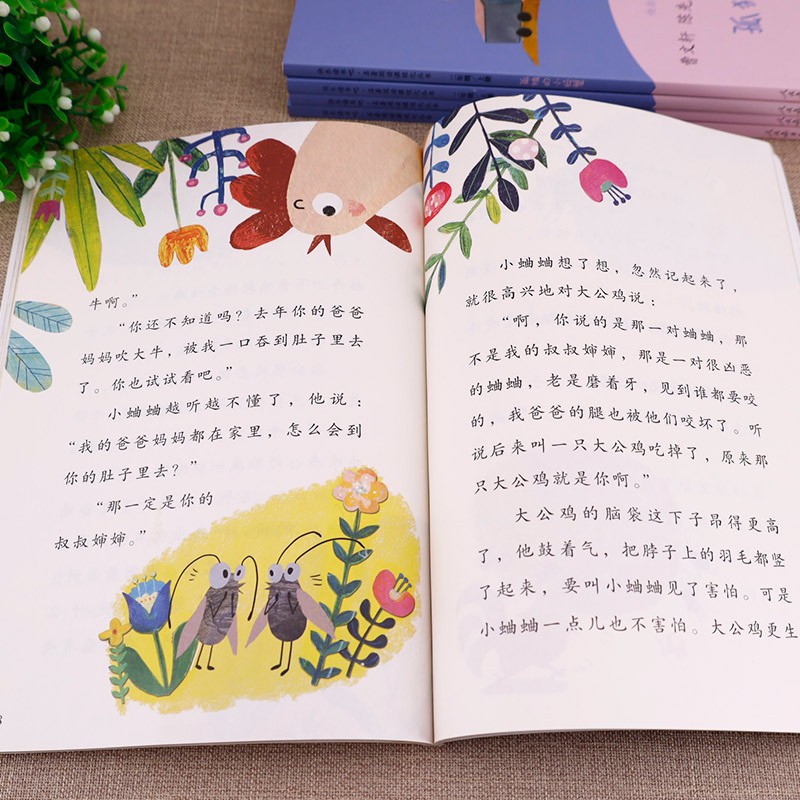 牛啊。”
“你还不知道吗？去年你的爸爸
妈妈吹大牛，被我一口吞到肚子里去
了。你也试试看吧。”
小蛐蛐越听越不懂了，他说：
“我的爸爸妈妈都在家里，怎么会到
你的肚子里去？”
“那一定是你的
叔叔婶婶。”
小蛐蛐想了想，忽然记起来了，
就很高兴地对大公鸡说：
“啊，你说的是那一对蛐蛐，那
不是我的叔叔婶婶，那是一对很凶恶
的蛐蛐，老是磨着牙，见到谁都要咬
的，我爸爸的腿也被他们咬坏了。听
说后来叫一只大公鸡吃掉了，原来那
只大公鸡就是你啊。”
大公鸡的脑袋这下子昂得更高
了，他鼓着气，把脖子上的羽毛都竖
了起来，要叫小蛐蛐见了害怕。可是
小蛐蛐一点儿也不害怕。大公鸡更生
曹文轩